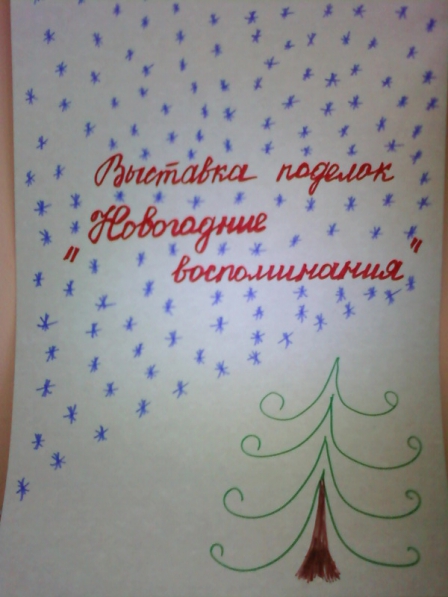 Выставка поделок
"Новогодние
воспоминания"